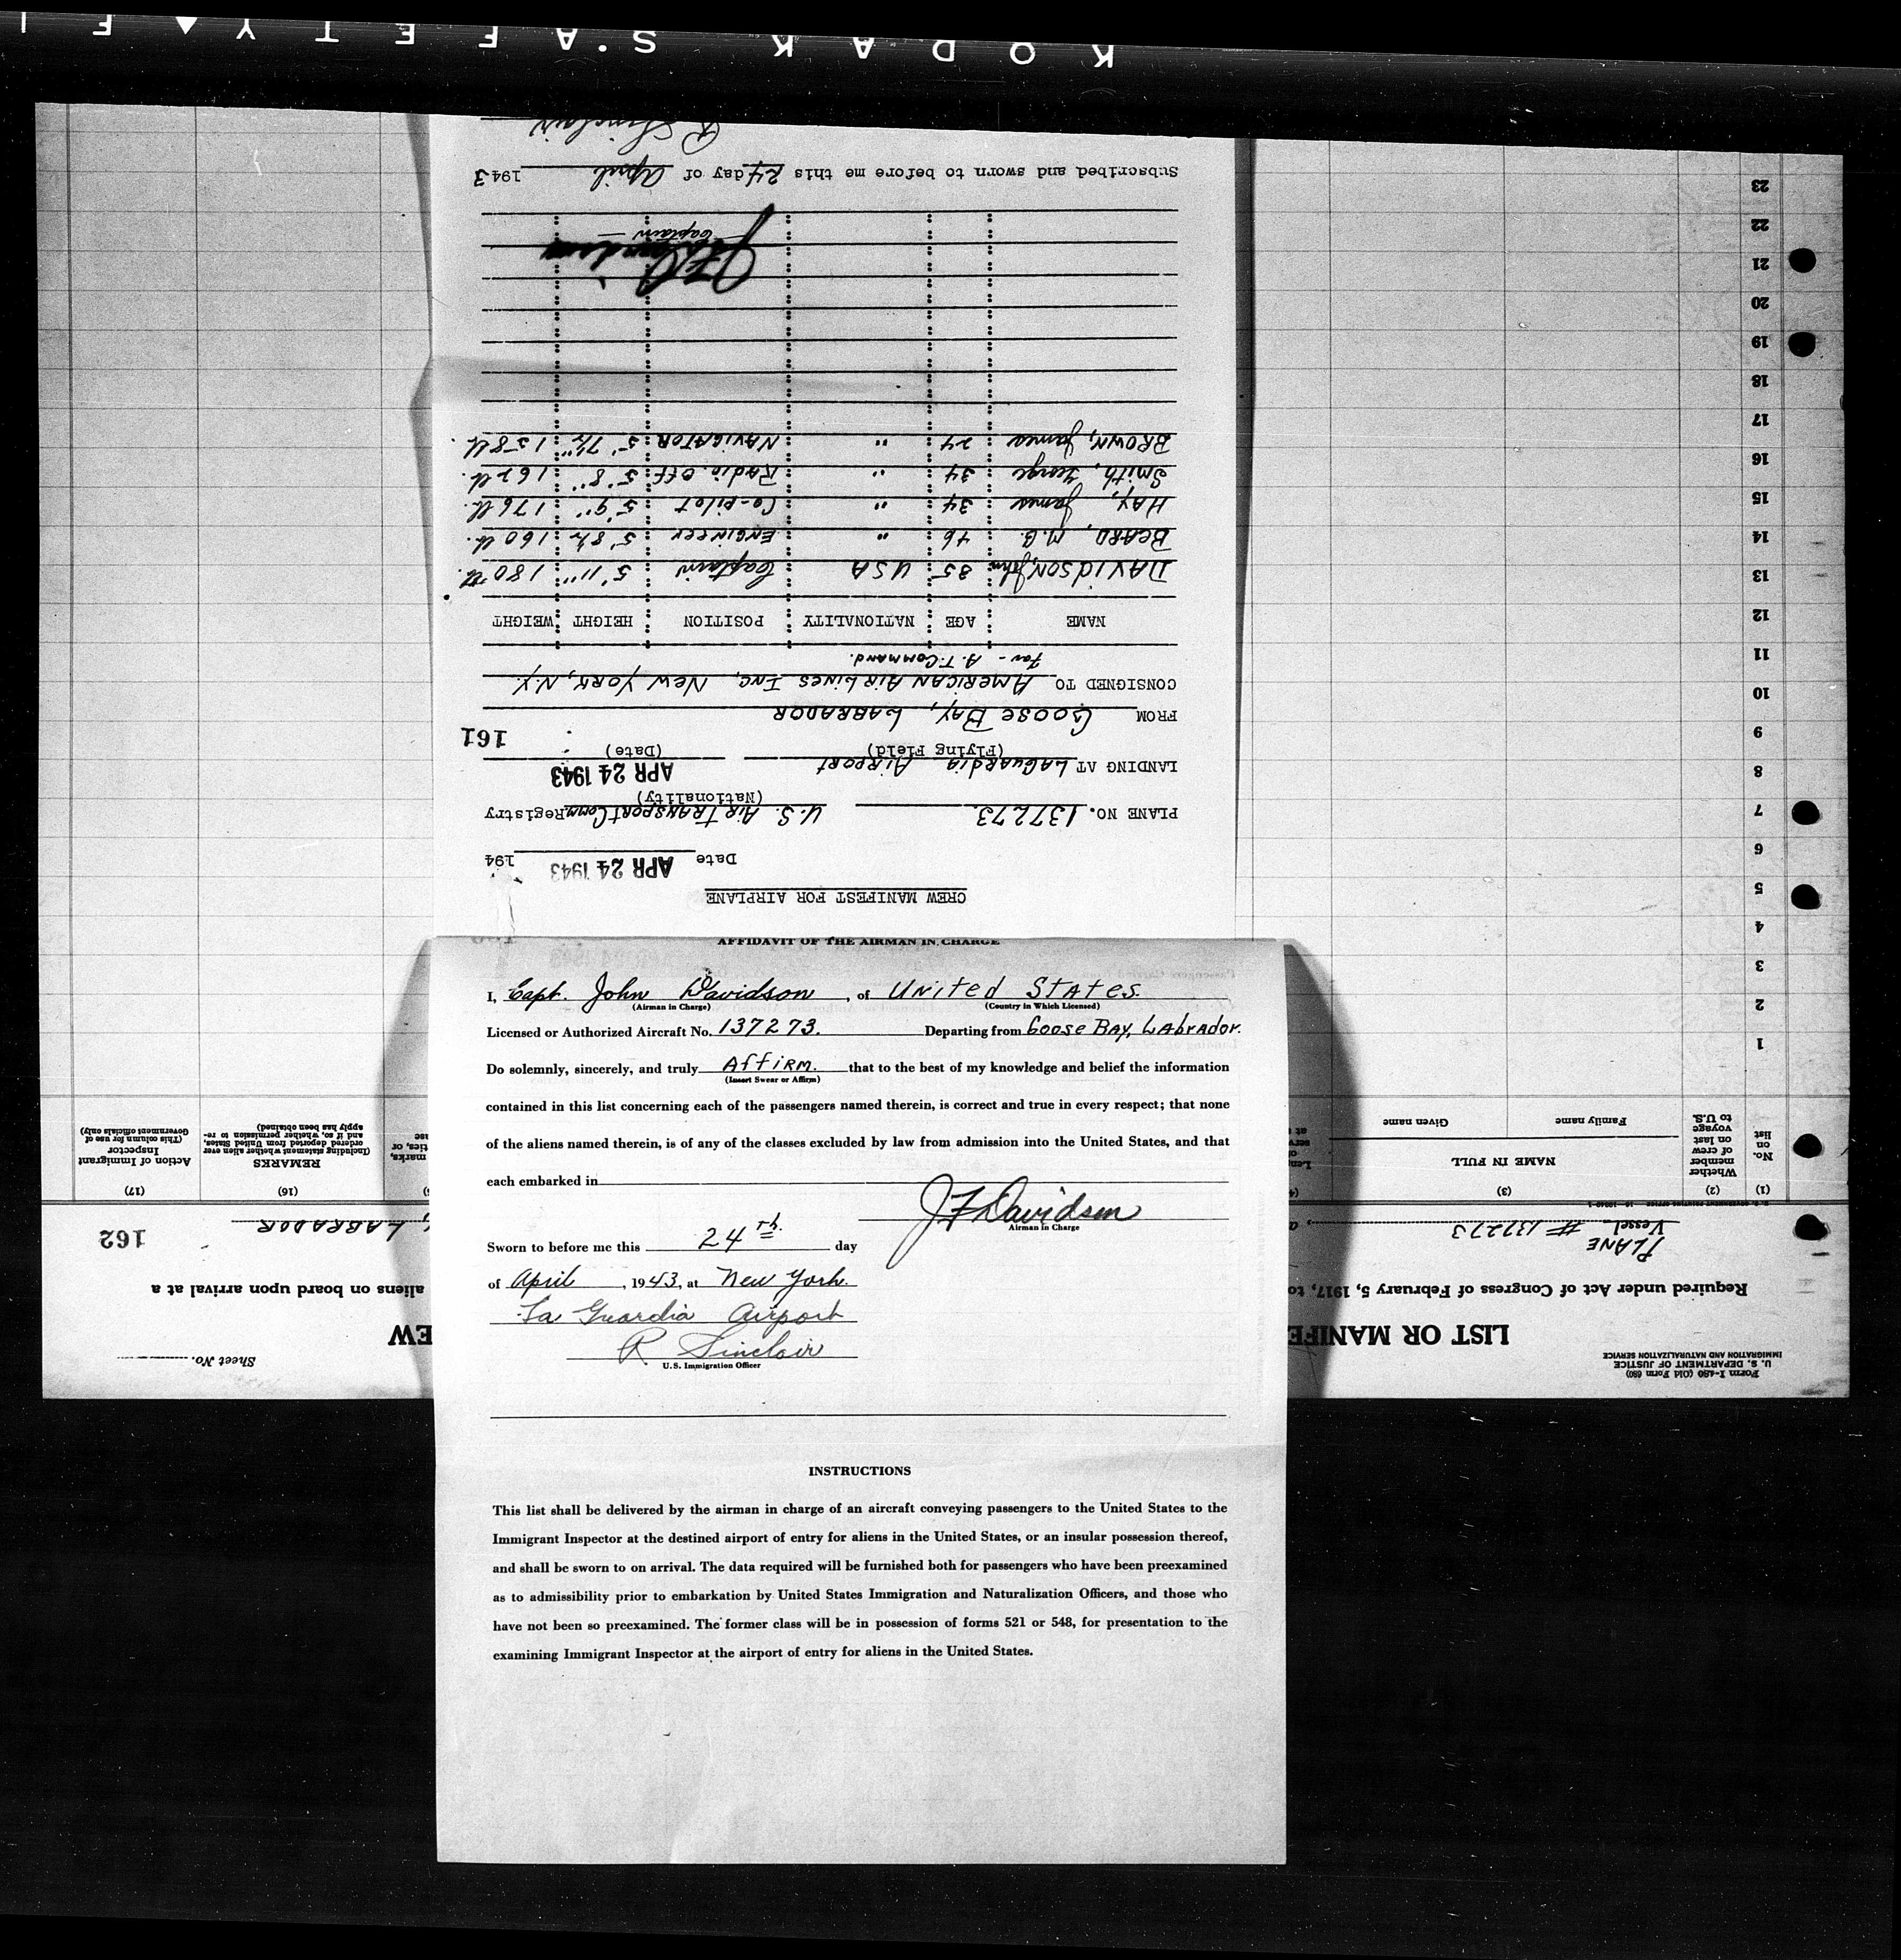 KODAK SAFETY
CREW MANIFEST FOR AIRPLANE
Date APR 24 1943 194
PLANE NO. 137273. U.S. AIR TRANSPORT Comm Registry
(Nationality)
LANDING AT LAGUARDIA AIRPORT APR 24 1943
(Flying Field) (Date)
161
FROM GOOSE BAY, LABRADOR
CONSIGNED TO AMERICAN AIRLINES INC, NEW YORK, N.Y.
For - A.T. COMMAND.
NAME AGE NATIONALITY POSITION HEIGHT WEIGHT
DAVIDSON, John 35 USA Captain 5' 11" 180 lb.
BEARD, M.G. 46 " ENGINEER 5' 8½ 160 lb.
HAY, James 34 " Co-pilot 5' 9" 176 lb.
Smith, George 34 " Radio. Off 5' 8" 162 lb.
BROWN, James 24 " NAVIGATOR 5' 7½" 158 lb.
JF Davidson
Captain
Subscribed and sworn to before me this 24 day of April 1943
R Sinclair
AFFIDAVIT OF THE AIRMAN IN CHARGE
I, Capt. John Davidson, of United States.
(Airman in Charge) (Country in Which Licensed)
Licensed or Authorized Aircraft No. 137273. Departing from Goose Bay, Labrador.
Do solemnly, sincerely, and truly Affirm. that to the best of my knowledge and belief the information
(Insert Swear or Affirm)
contained in this list concerning each of the passengers named therein, is correct and true in every respect; that none
of the aliens named therein, is of any of the classes excluded by law from admission into the United States, and that
each embarked in
JF Davidson
Airman in Charge
Sworn to before me this 24th. day
of April, 1943, at New York.
La Guardia Airport
R Sinclair
U.S. Immigration Officer
INSTRUCTIONS
This list shall be delivered by the airman in charge of an aircraft conveying passengers to the United States to the
Immigrant Inspector at the destined airport of entry for aliens in the United States, or an insular possession thereof,
and shall be sworn to on arrival. The data required will be furnished both for passengers who have been preexamined
as to admissibility prior to embarkation by United States Immigration and Naturalization Officers, and those who
have not been so preexamined. The former class will be in possession of forms 521 or 548, for presentation to the
examining Immigrant Inspector at the airport of entry for aliens in the United States.
Form I-480 (Old Form 680)
U. S. DEPARTMENT OF JUSTICE
IMMIGRATION AND NATURALIZATION SERVICE
Sheet No.
LIST OR MANIFE EW
Required under Act of Congress of February 5, 1917, to aliens on board upon arrival at a
PLANE
Vessel # 137273 , LABRADOR 162
(1) (2) (3) (4 (16) (17)
No. on list
Whether member of crew on last voyage to U.S.
NAME IN FULL
Family name Given name
REMARKS
(Including statement whether alien ever
ordered deported from United States,
and if so, whether permission to re-
apply has been obtained)
Action of Immigrant
Inspector
(This column for use of
Government officials only)
1
2
3
4
5
6
7
8
9
10
11
12
13
14
15
16
17
18
19
20
21
22
23